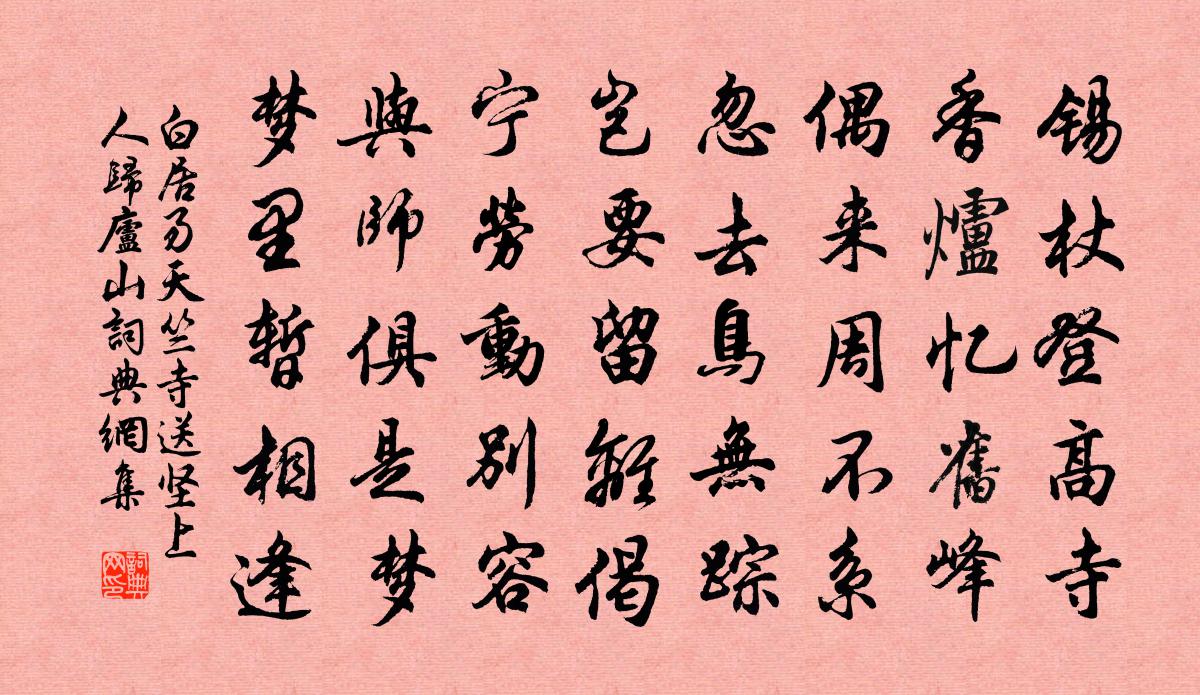 锡杖登高寺
香爐忆舊峰
偶来周不系
忽去鳥無踪
岂要留離偈
宁勞動别容
與師俱是梦
梦里暫相逢
白居易天竺寺送坚上
人歸廬山詞典網集
詞典
网印